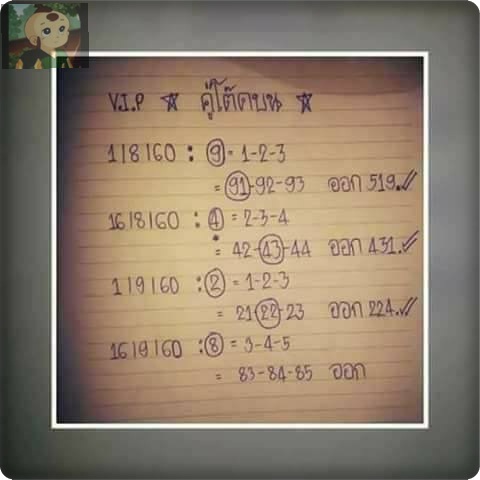 V.I.P ☆ คู่โต๊ดบน ☆
1/8/60 : 9 = 1-2-3
= 91-92-93 ออก 519.✓
16/8/60 : 4 = 2-3-4
= 42-43-44 ออก 431.✓
1/9/60 : 2 = 1-2-3
= 21-22-23 ออก 224.✓
16/9/60 : 8 = 3-4-5
= 83-84-85 ออก